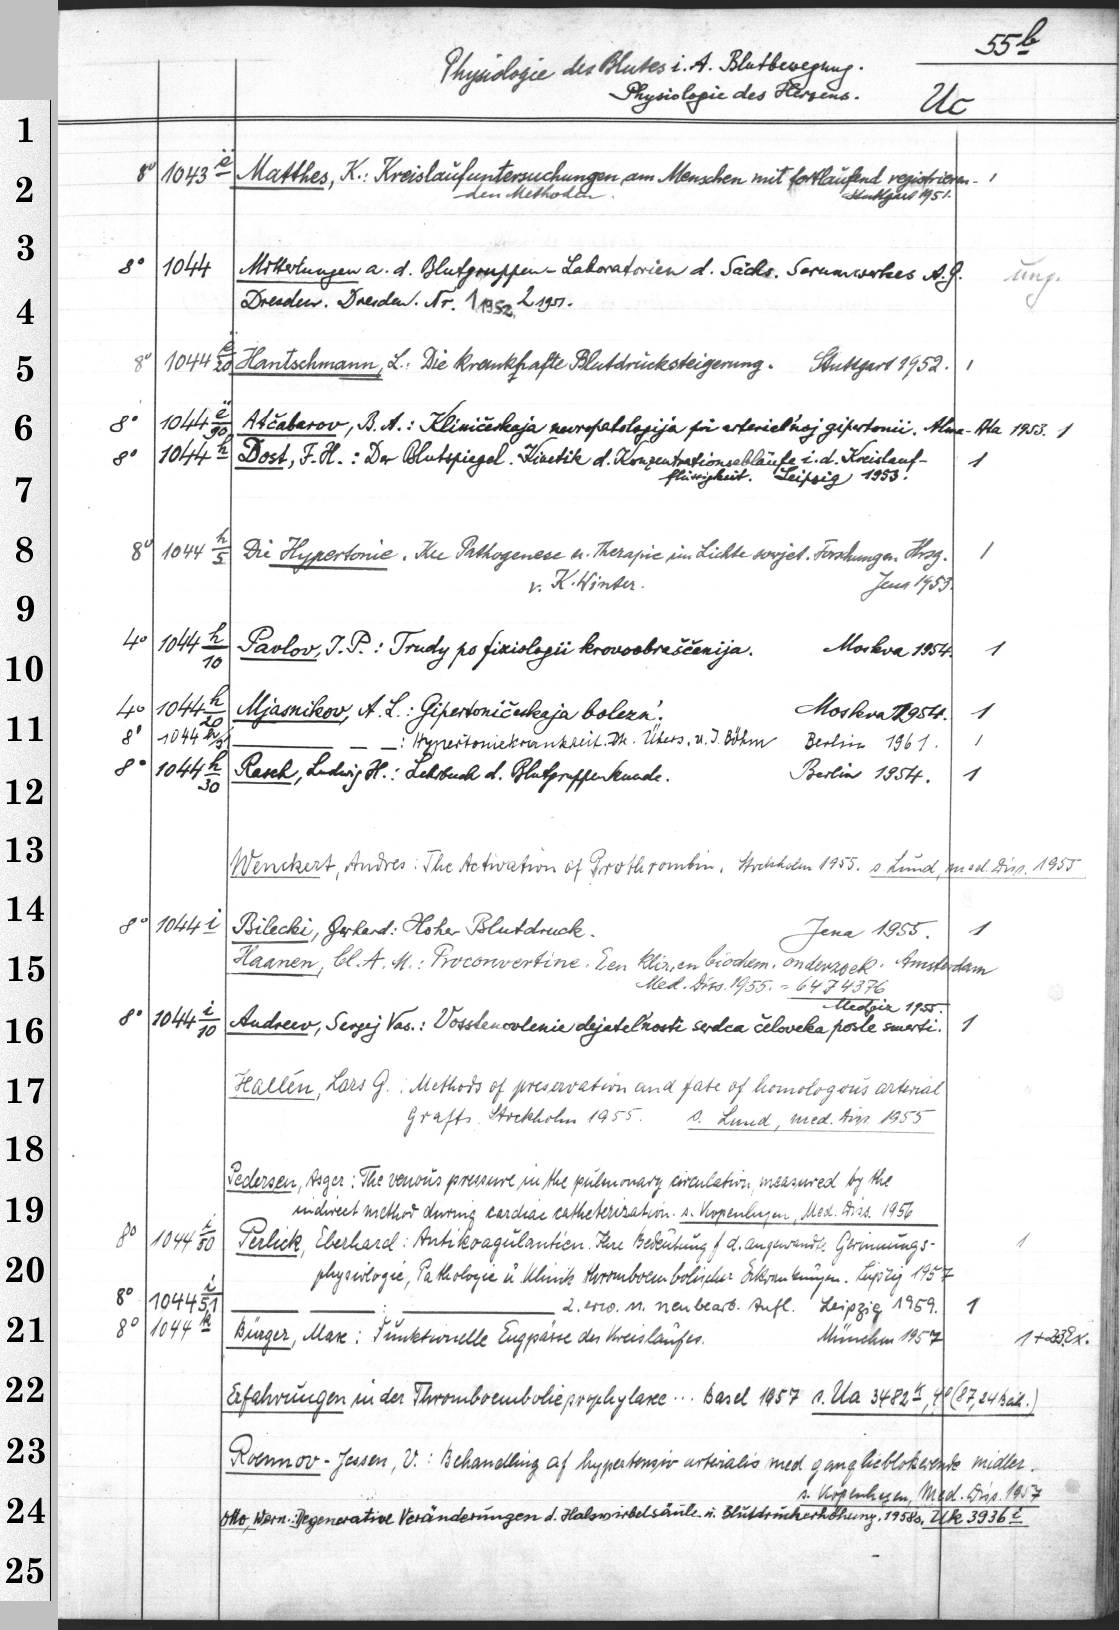 55b
Physiologie des Blutes i. A. Blutbewegung.
Physiologie des Herzens.
Uc
1
2
3
4
5
6
7
8
9
10
11
12
13
14
15
16
17
18
19
20
21
22
23
24
25
8° 1043 ë Matthes, K.: Kreislaufuntersuchungen am Menschen mit fortlaufend registrieren- 1
den Methoden. Stuttgart 1951.
8° 1044 Mitteilungen a. d. Blutgruppen-Laboratorien d. Sächs. Serumwerkes A.G. ung.
Dresden. Dresden. Nr. 1 1952, 2 1951.
8° 1044 ë/20 Hantschmann, L.: Die krankhafte Blutdrucksteigerung. Stuttgart 1952. 1
8° 1044 ë/90 Atčabarov, B. A.: Kliničeskaja nevropatologija pri arteriel'noj gipertonii. Alma-Ata 1953. 1
8° 1044 h Dost, F. H.: Der Blutspiegel. Kinetik d. Konzentrationsabläufe i. d. Kreislauf- 1
flüssigkeit. Leipzig 1953.
8° 1044 h/5 Die Hypertonie. Ihre Pathogenese u. Therapie im Lichte sowjet. Forschungen. Hrsg. 1
v. K. Winter. Jena 1953.
4° 1044 h/10 Pavlov, I. P.: Trudy po fiziologii krovoobraščenija. Moskva 1954. 1
4° 1044 h/20 Mjasnikov, A. L.: Gipertoničeskaja bolezn'. Moskva 1954. 1
8° 1044 h/21 — — —: Hypertoniekrankheit. Dt. Übers. v. J. Böhm Berlin 1961. 1
8° 1044 h/30 Rasch, Ludwig H.: Lehrbuch d. Blutgruppenkunde. Berlin 1954. 1
Wenckert, Andres: The Activation of Prothrombin. Stockholm 1955. s. Lund, med. Diss. 1955
8° 1044 i Bilecki, Gerhard: Hoher Blutdruck. Jena 1955. 1
Haanen, Cl. A. M.: Proconvertine. Een klin. en biochem. onderzoek. Amsterdam
Med. Diss. 1955. = 64 7 4376
Medgiz 1955.
8° 1044 i/10 Andreev, Sergej Vas.: Vosstanovlenie dejatel'nosti serdca čeloveka posle smerti. 1
Hallén, Lars G.: Methods of preservation and fate of homologous arterial
grafts. Stockholm 1955. s. Lund, med. Diss 1955
Pedersen, Asger: The venous pressure in the pulmonary circulation, measured by the
indirect method during cardiac catheterization. s. Kopenhagen, Med. Diss. 1956
8° 1044 i/50 Perlick, Eberhard: Antikoagulantien. Ihre Bedeutung f. d. angewandte Gerinnungs- 1
physiologie, Pathologie u Klinik thromboembolischer Erkrankungen. Leipzig 1957
8° 1044 i/51 — —: — 2. erw. u. neubearb. Aufl. Leipzig 1959. 1
8° 1044 k Bürger, Max: Funktionelle Engpässe des Kreislaufes. München 1957 1+23Ex.
Erfahrungen in der Thromboembolieprophylaxe ... Basel 1957 s. Ua 3482 k, 4° (87, 24 Beih.)
Roennov-Jessen, V.: Behandling af hypertensio arterialis med ganglieblokerende midler.
s. Kopenhagen, Med. Diss. 1957
Otto, Wern.: Degenerative Veränderungen d. Halswirbelsäule u. Blutdruckerhöhung. 1958 s. Uk 3936 i